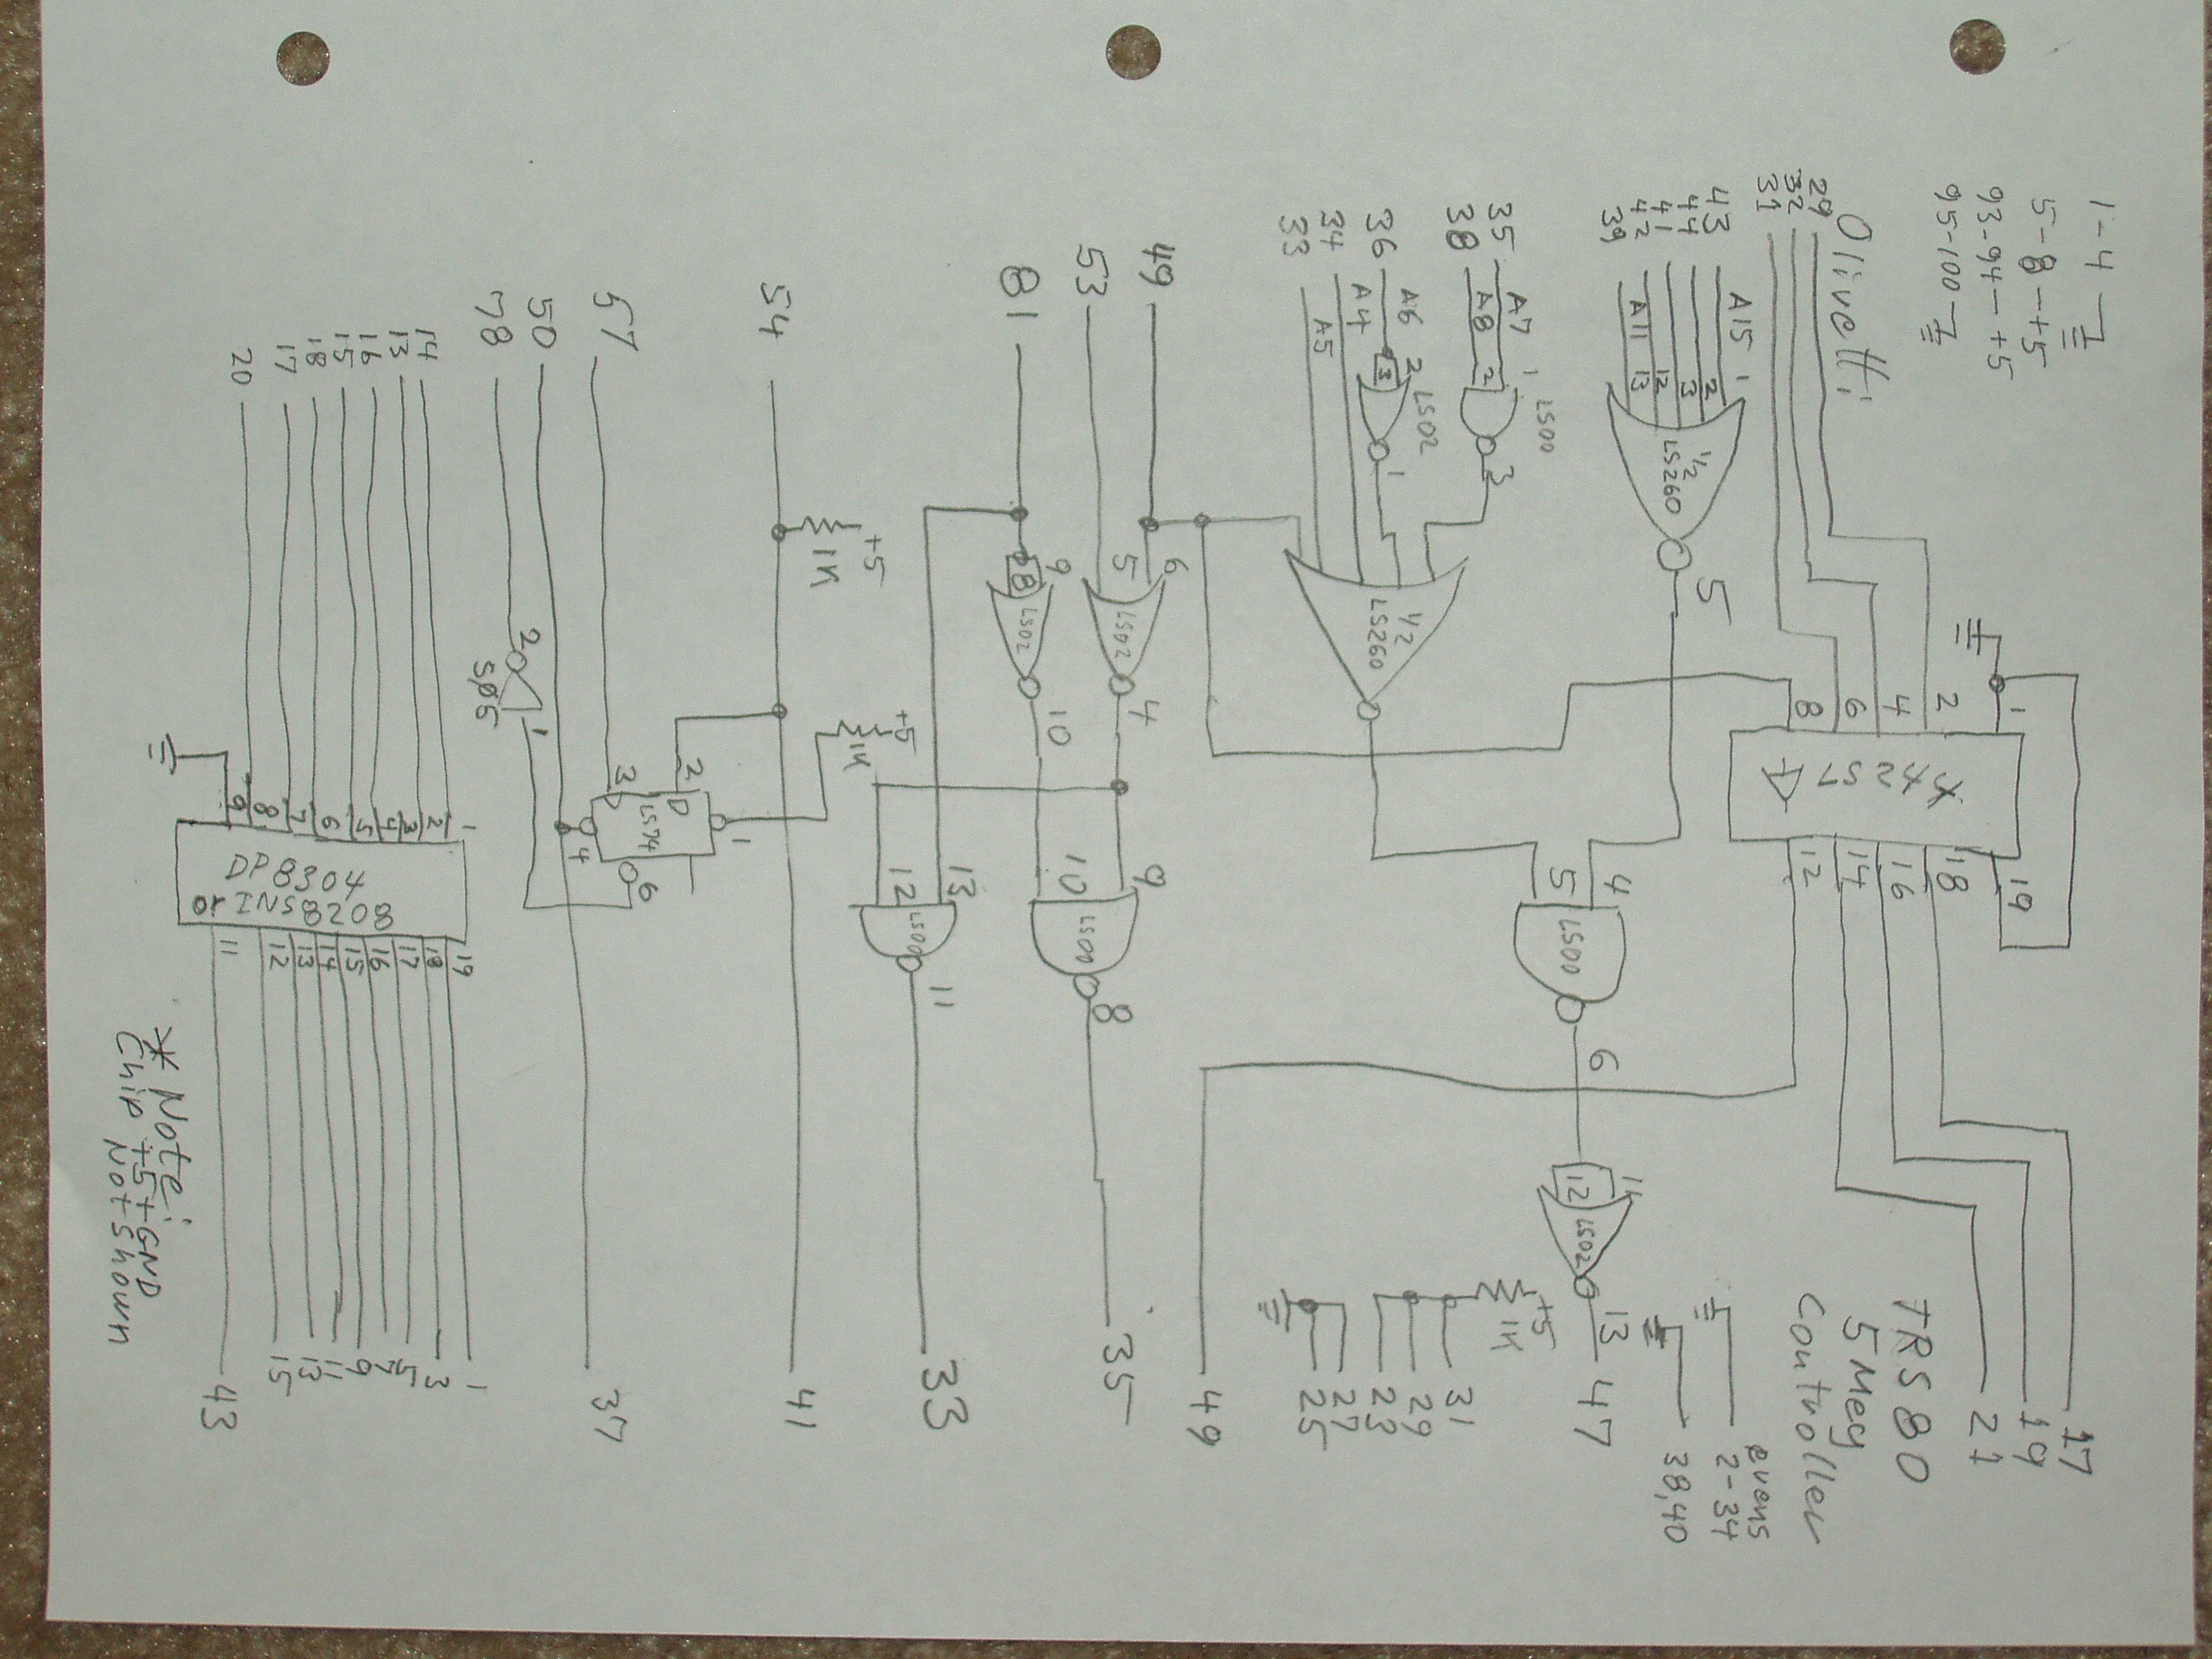 1-4 -
5-8 - +5
93-94 - +5
95-100 -
Olivetti
TRS80
5 Meg
Controller
29
32
31
2
4
6
8
1
LS244
19
18
16
14
12
17
19
21
43
44
41
42
39
A15
A11
1
2
3
12
13
1/2
LS260
5
35
38
A7
A8
1
2
LS00
3
36
34
33
A6
A4
A5
2
3
LS02
1
1/2
LS260
4
5
LS00
6
11
12
LS02
13
47
evens
2-34
38,40
+5
1K
31
29
23
27
25
49
49
53
6
5
LS02
4
81
9
8
LS02
10
9
10
LS00
8
35
13
12
LS00
11
33
54
+5
1K
+5
1K
41
57
50
78
2
3
D
LS74
1
4
6
2
1
S05
37
14
13
16
15
18
17
20
1
2
3
4
5
6
7
8
9
DP8304
or INS8208
19
18
17
16
15
14
13
12
11
1
3
5
7
9
11
13
15
43
* Note:
Chip +5+GND
Not shown